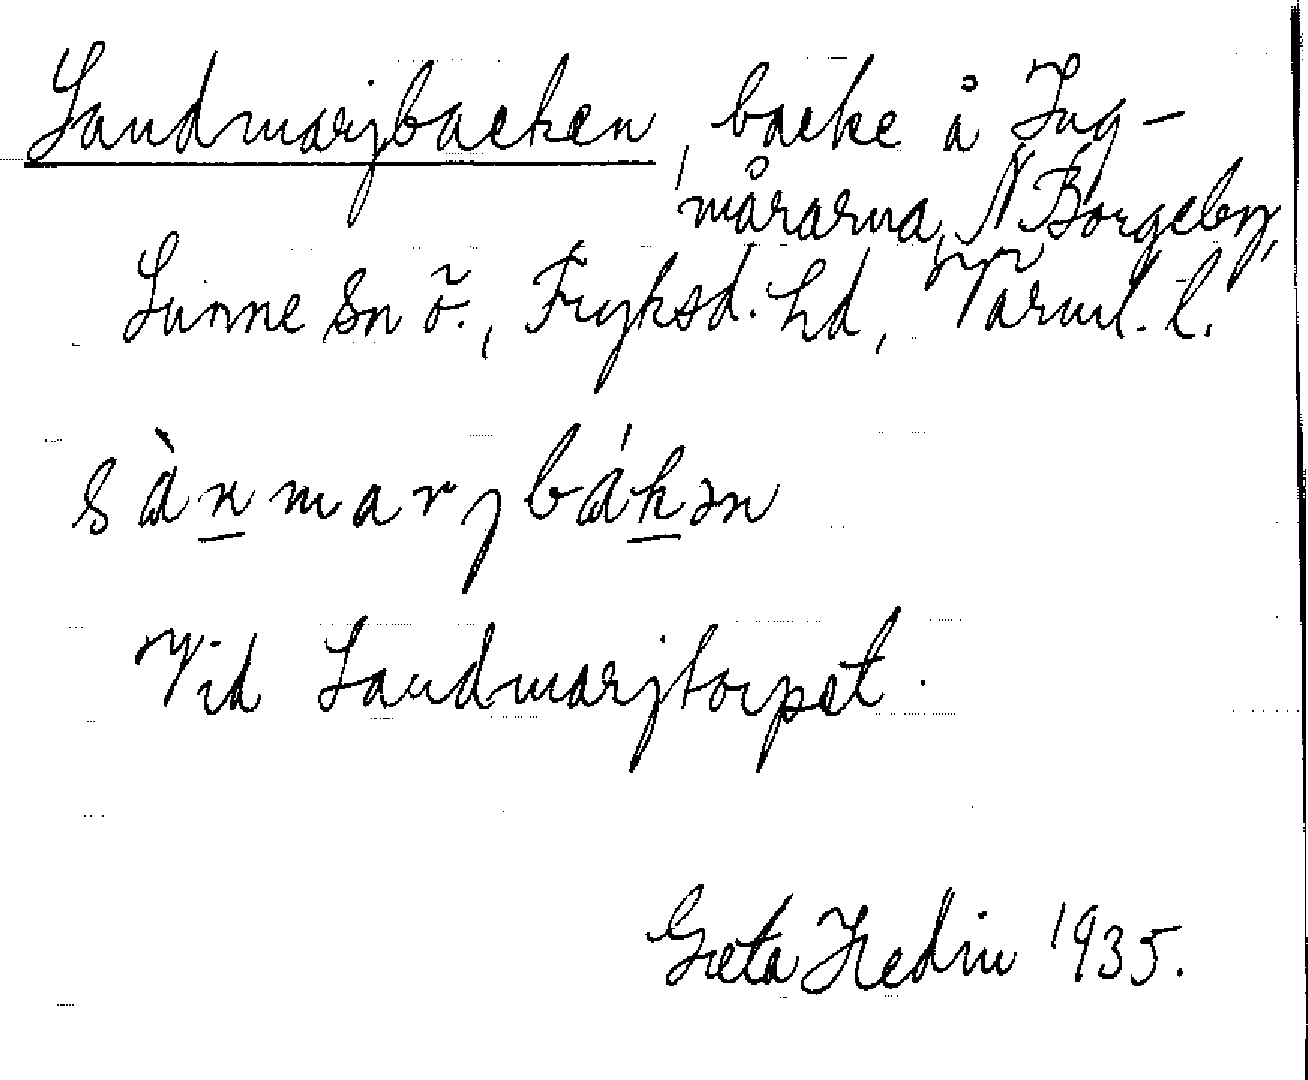 Sandmarjbacken, backe å Ing-
mårarna, N Borgeby,
Sunne sn ö., Fryksd. hd, Värml. l.
sànmarjbákən
Vid Sandmarjtorpet.
Greta Hedin 1935.